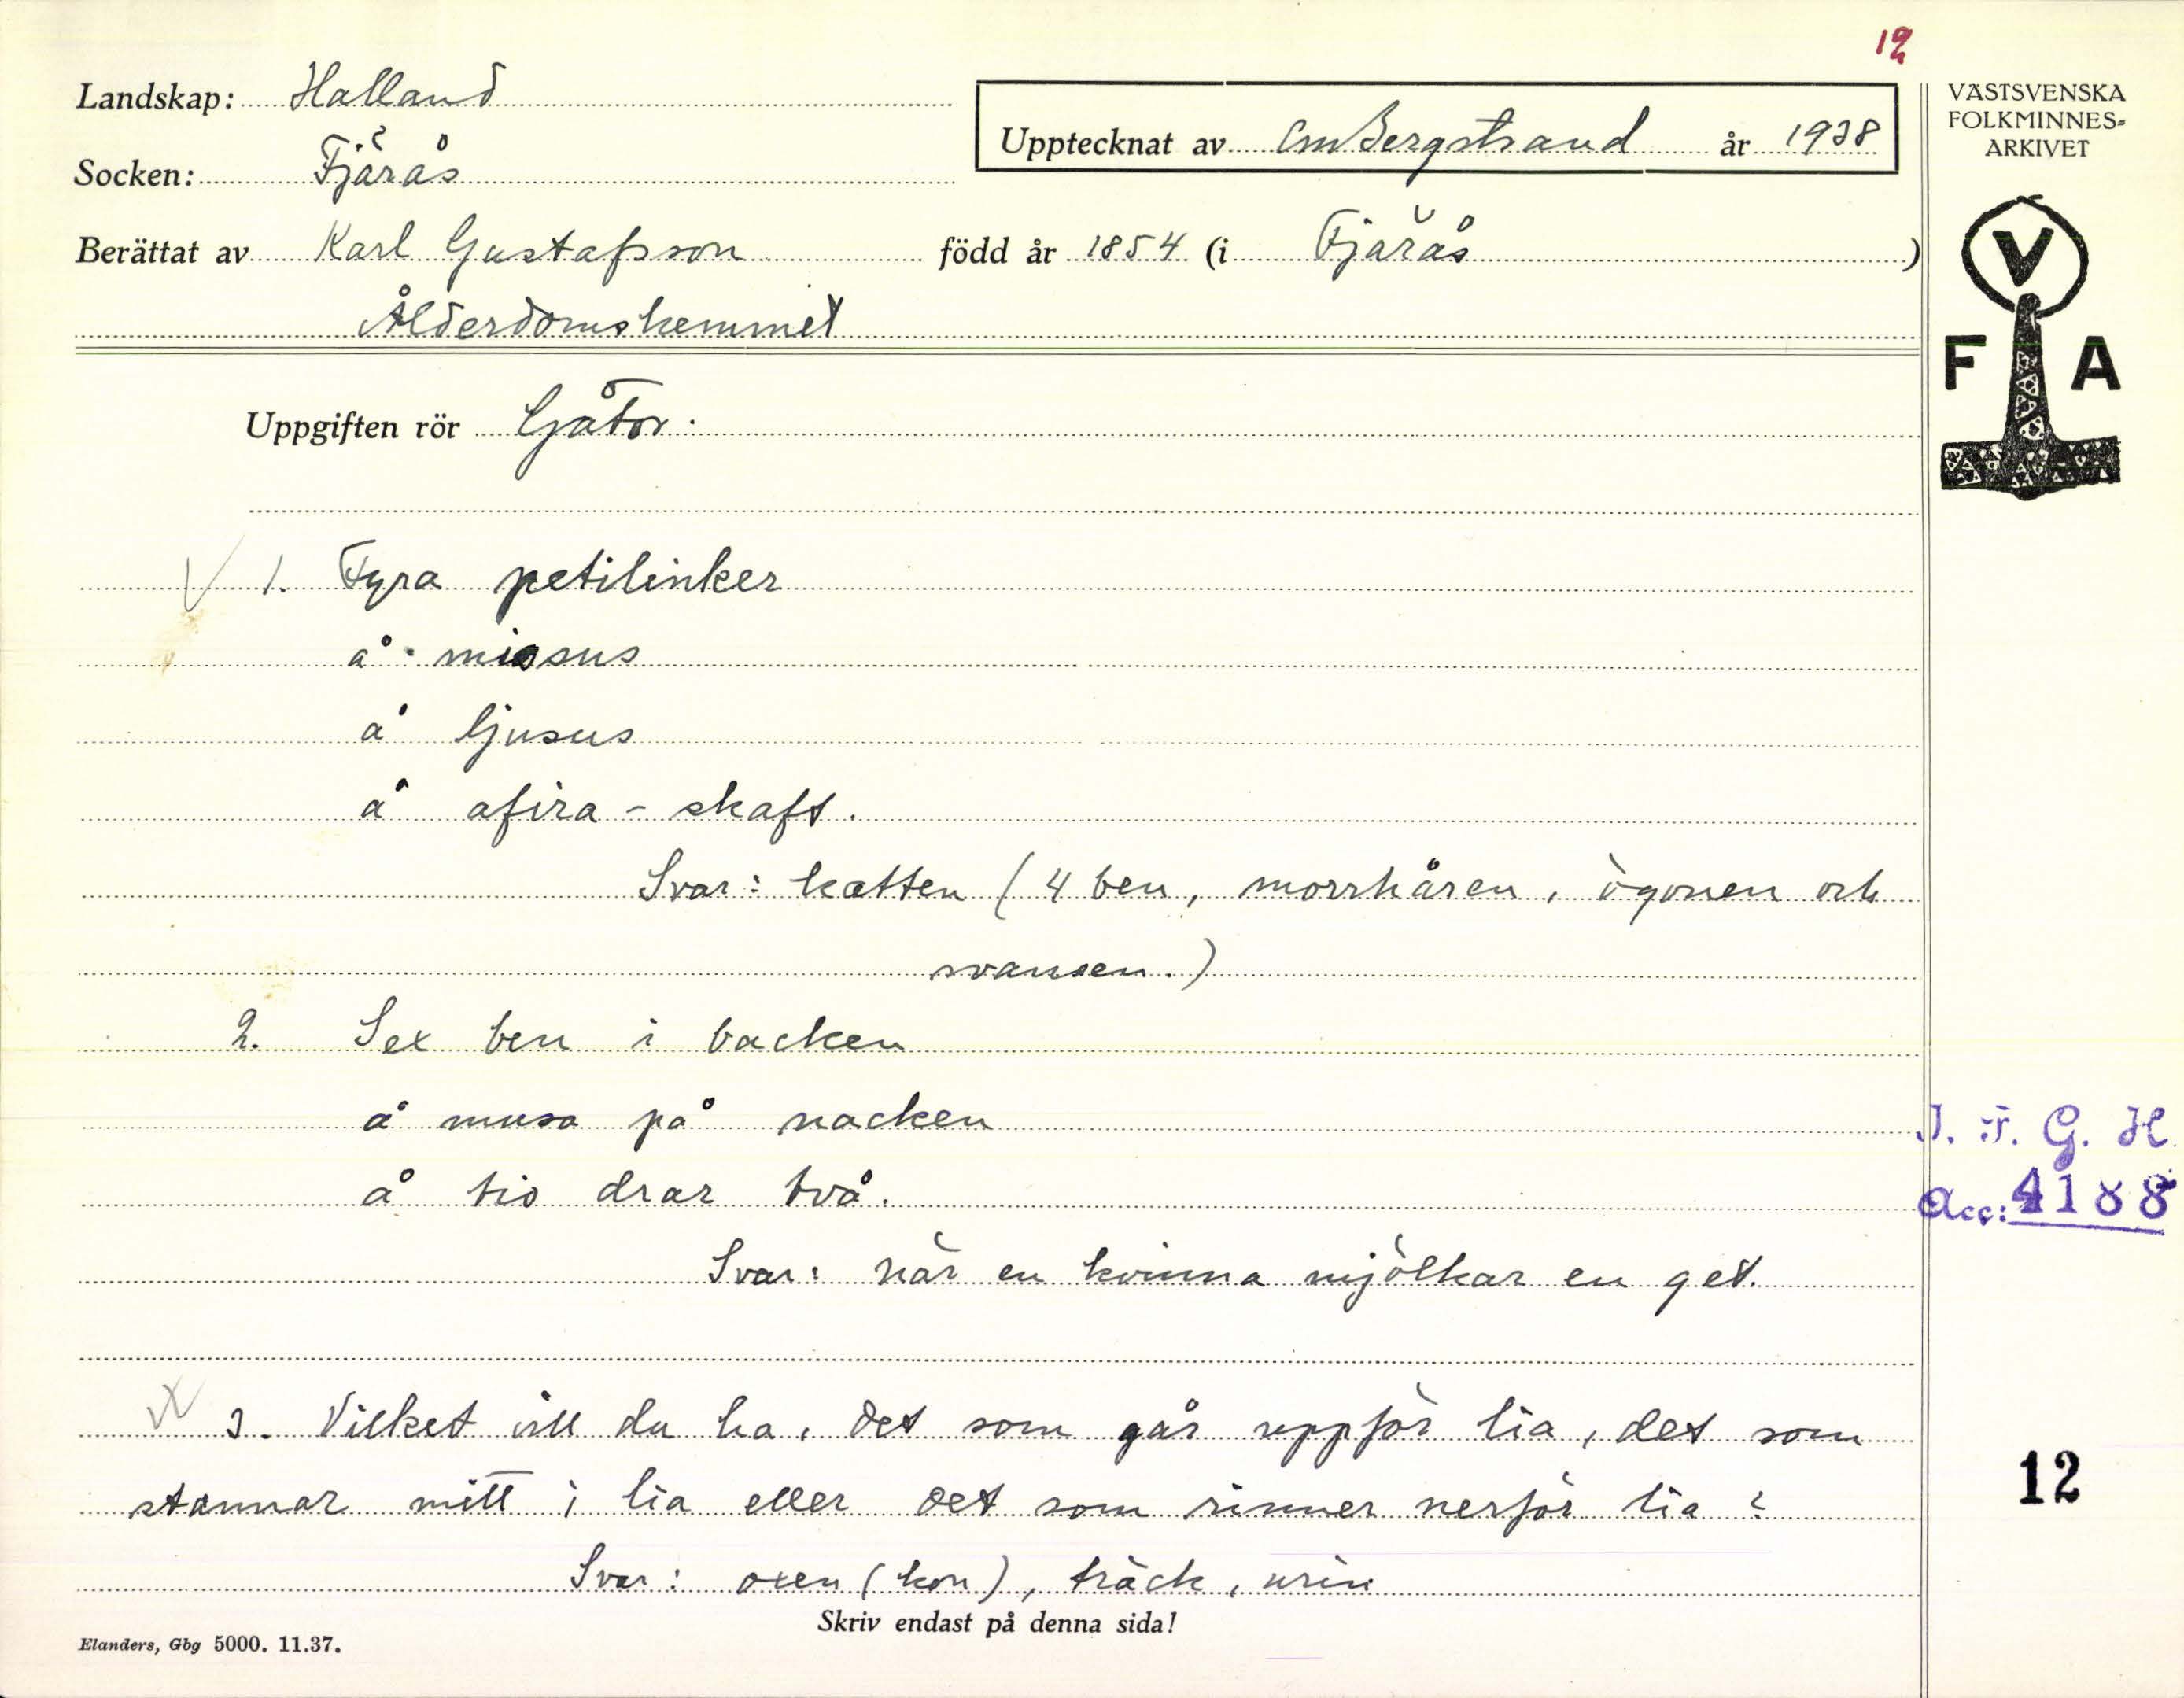 12
Landskap: Halland
Upptecknat av EmBergstrand år 1938
Socken: Fjärås
Berättat av Karl Gustafsson född år 1854 (i Fjärås)
Ålderdomshemmet
VÄSTSVENSKA
FOLKMINNES-
ARKIVET
V
F A
Uppgiften rör Gåtor.
1. Fyra petilinker
å missus
å ljusus
å afira-skaft.
Svar: katten (4 ben, morrhåren, ögonen och
svansen.)
2. Sex ben i backen
å musa på nacken
å tio drar två.
Svar: när en kvinna mjölkar en get.
I. F. G. H.
Acc: 4188
3. Vilket vill du ha, det som går uppför lia, det som
stannar mitt i lia eller det som rinner nerför lia?
Svar: oxen (kon), träck, urin
12
Skriv endast på denna sida!
Elanders, Gbg 5000. 11.37.